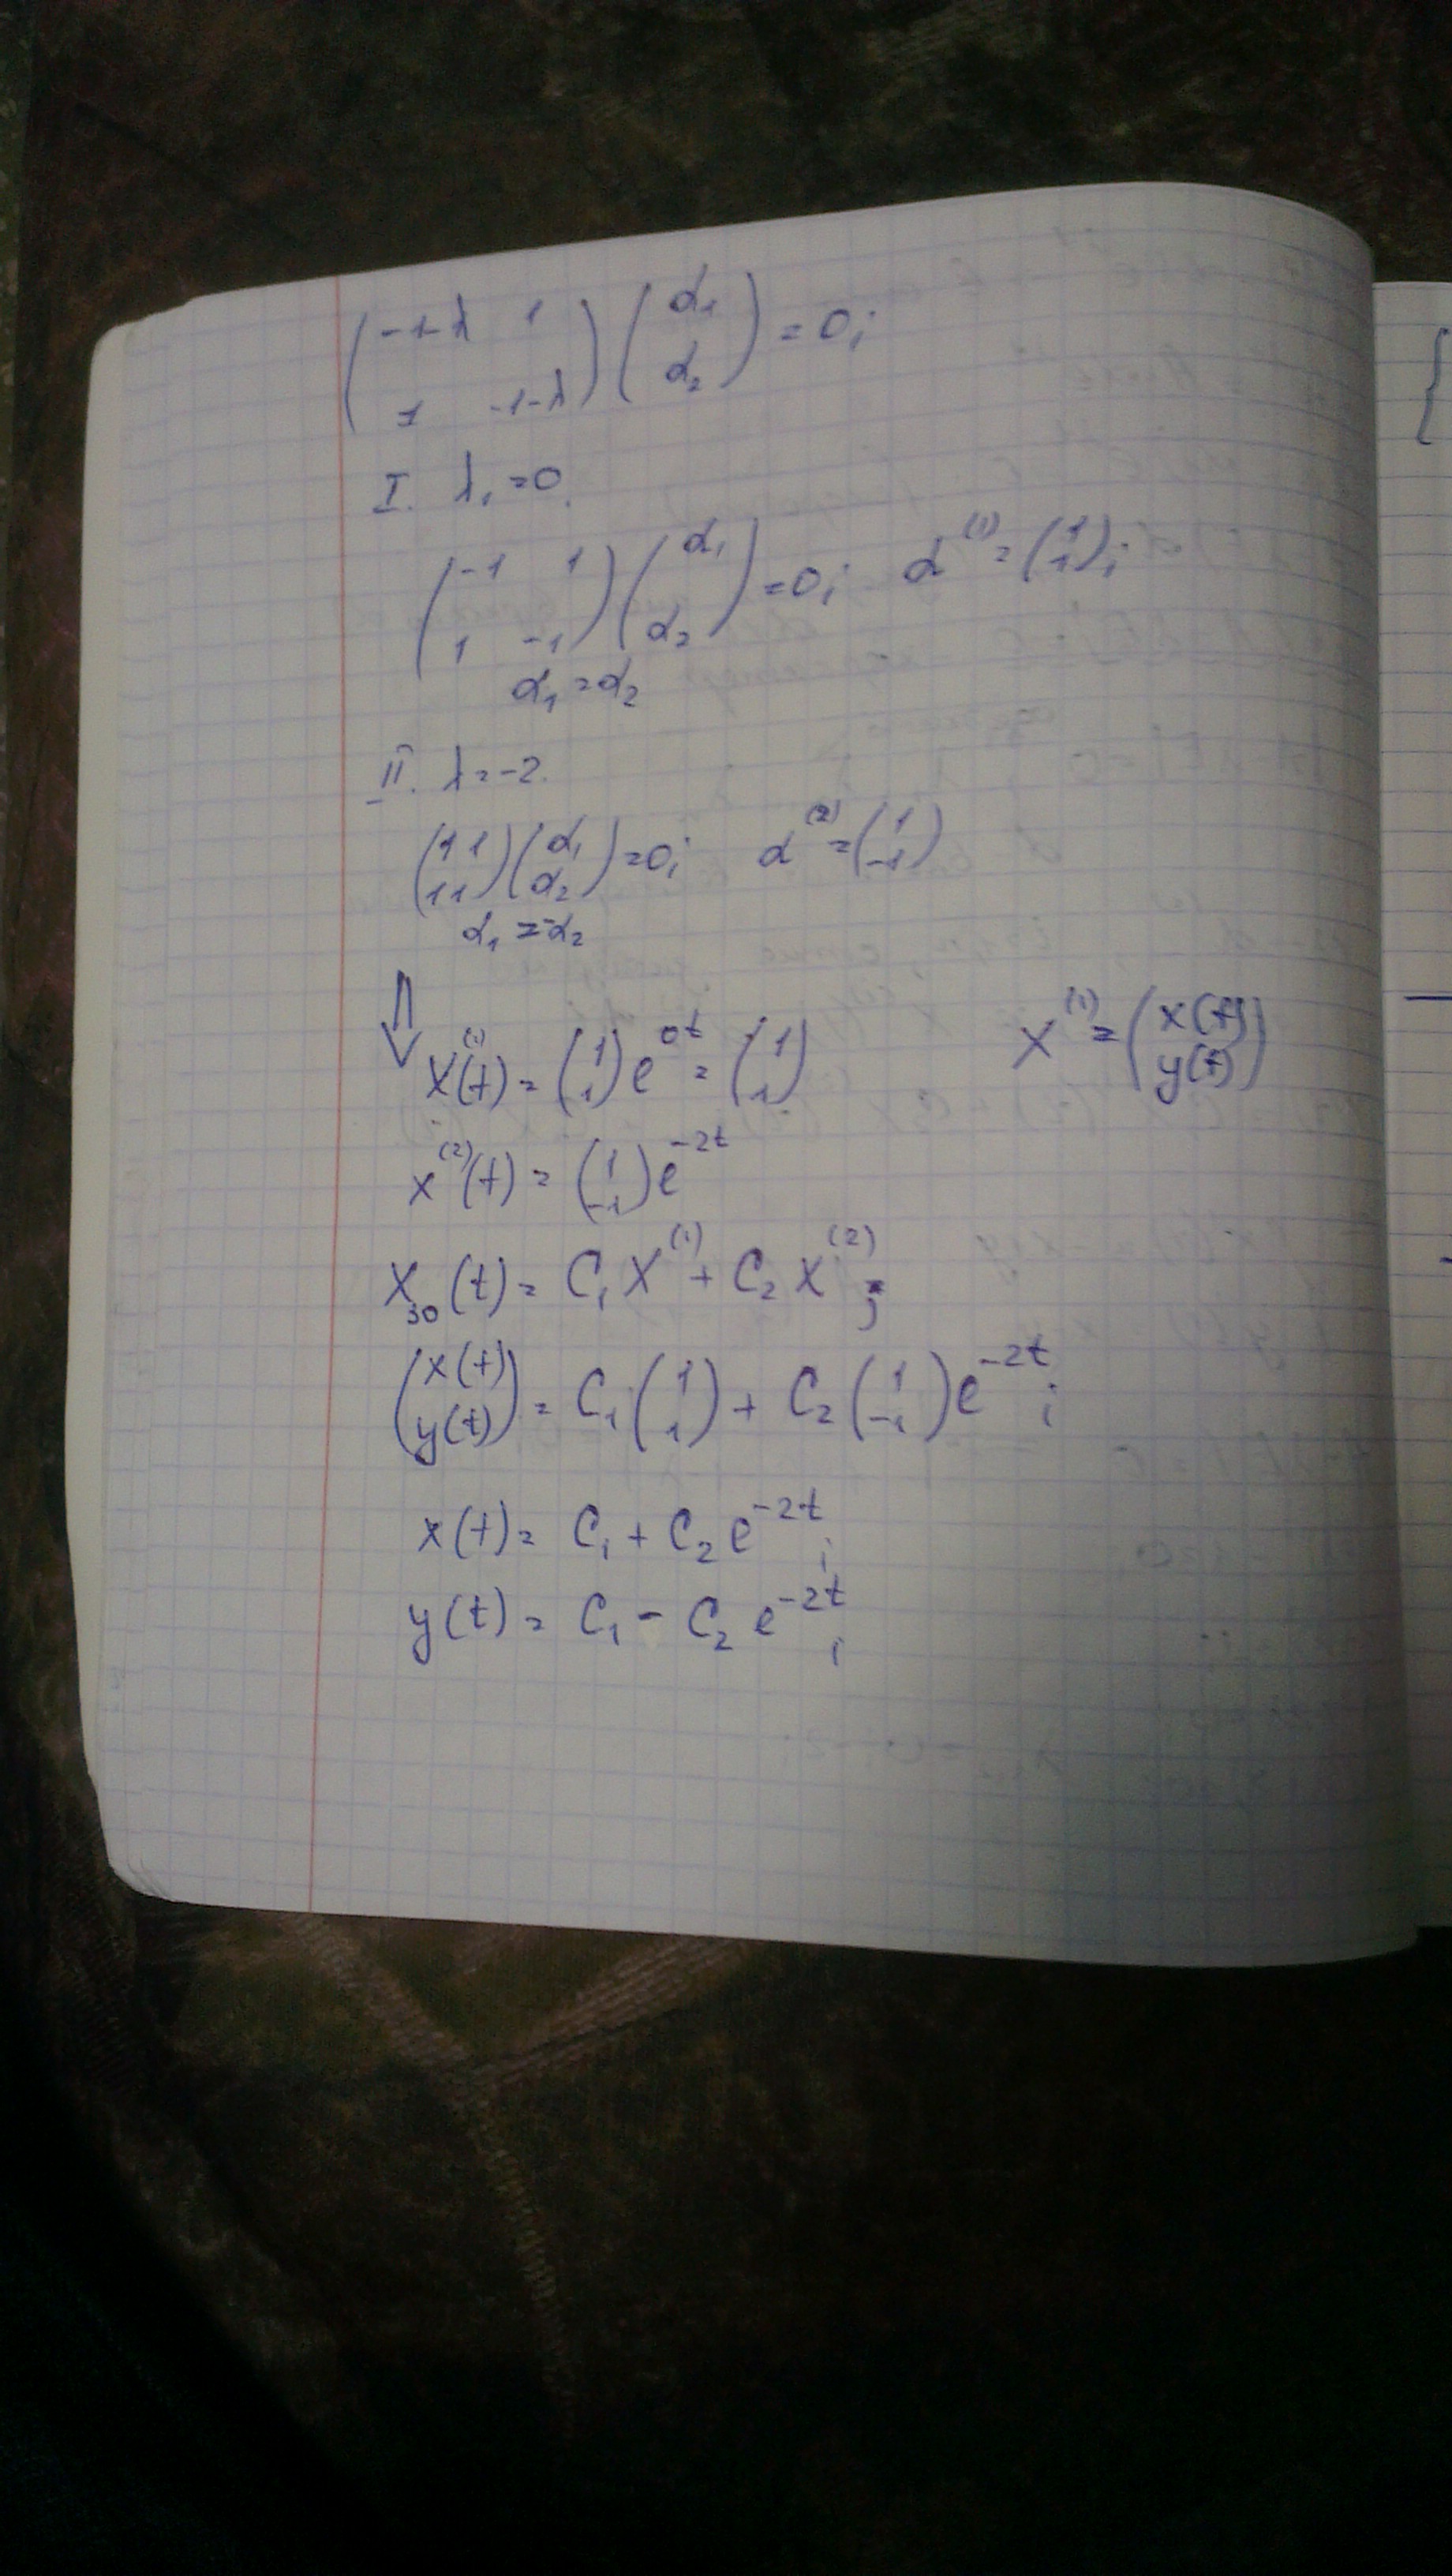 (-1-λ 1
1 -1-λ) (α₁
α₂) = 0;
I. λ₁ = 0.
(-1 1
1 -1) (α₁
α₂) = 0; α⁽¹⁾ = (1
1);
α₁ = α₂
II. λ = -2.
(1 1
1 1) (α₁
α₂) = 0; α⁽²⁾ = (1
-1)
α₁ = -α₂
⇓
X⁽¹⁾(t) = (1
1) e^{0t} = (1
1) X⁽¹⁾ = (x(t)
y(t))
x⁽²⁾(t) = (1
-1) e^{-2t}
X₃₀(t) = C₁X⁽¹⁾ + C₂X⁽²⁾;
(x(t)
y(t)) = C₁(1
1) + C₂(1
-1) e^{-2t};
x(t) = C₁ + C₂e^{-2t};
y(t) = C₁ - C₂e^{-2t};